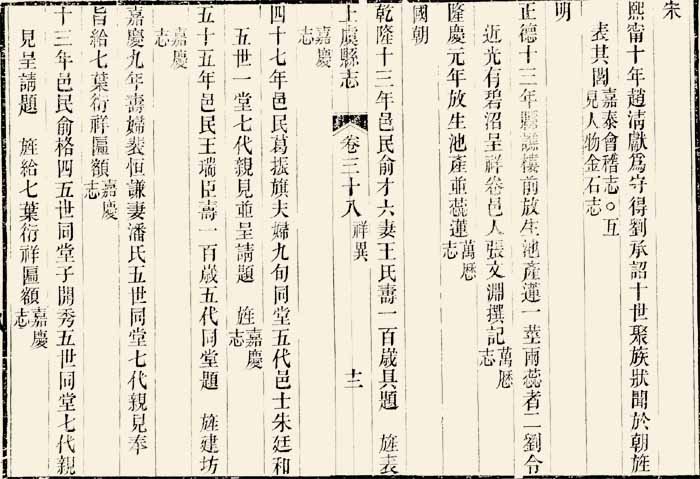 宋
熙甯十年趙淸獻爲守得劉承詔十世聚族狀聞於朝旌
表其閭嘉泰會稽志○互見人物金石志
明
正德十三年縣譙樓前放生池產蓮一莖兩蕊者二劉令
近光有碧沼呈祥卷邑人張文淵撰記萬厯志
隆慶元年放生池產並蕊蓮萬厯志
國朝
乾隆十三年邑民俞才六妻王氏壽一百歲具題 旌表
嘉慶志
上虞縣志 卷三十八 祥異 十二
四十七年邑民葛振旗夫婦九旬同堂五代邑士朱廷和
五世一堂七代親見並呈請題 旌嘉慶志
五十五年邑民王瑞臣壽一百歲五代同堂題 旌建坊
嘉慶志
嘉慶九年壽婦裴恒謙妻潘氏五世同堂七代親見奉
旨給七葉衍祥匾額嘉慶志
十三年邑民俞格四五世同堂子開秀五世同堂七代親
見呈請題 旌給七葉衍祥匾額嘉慶志